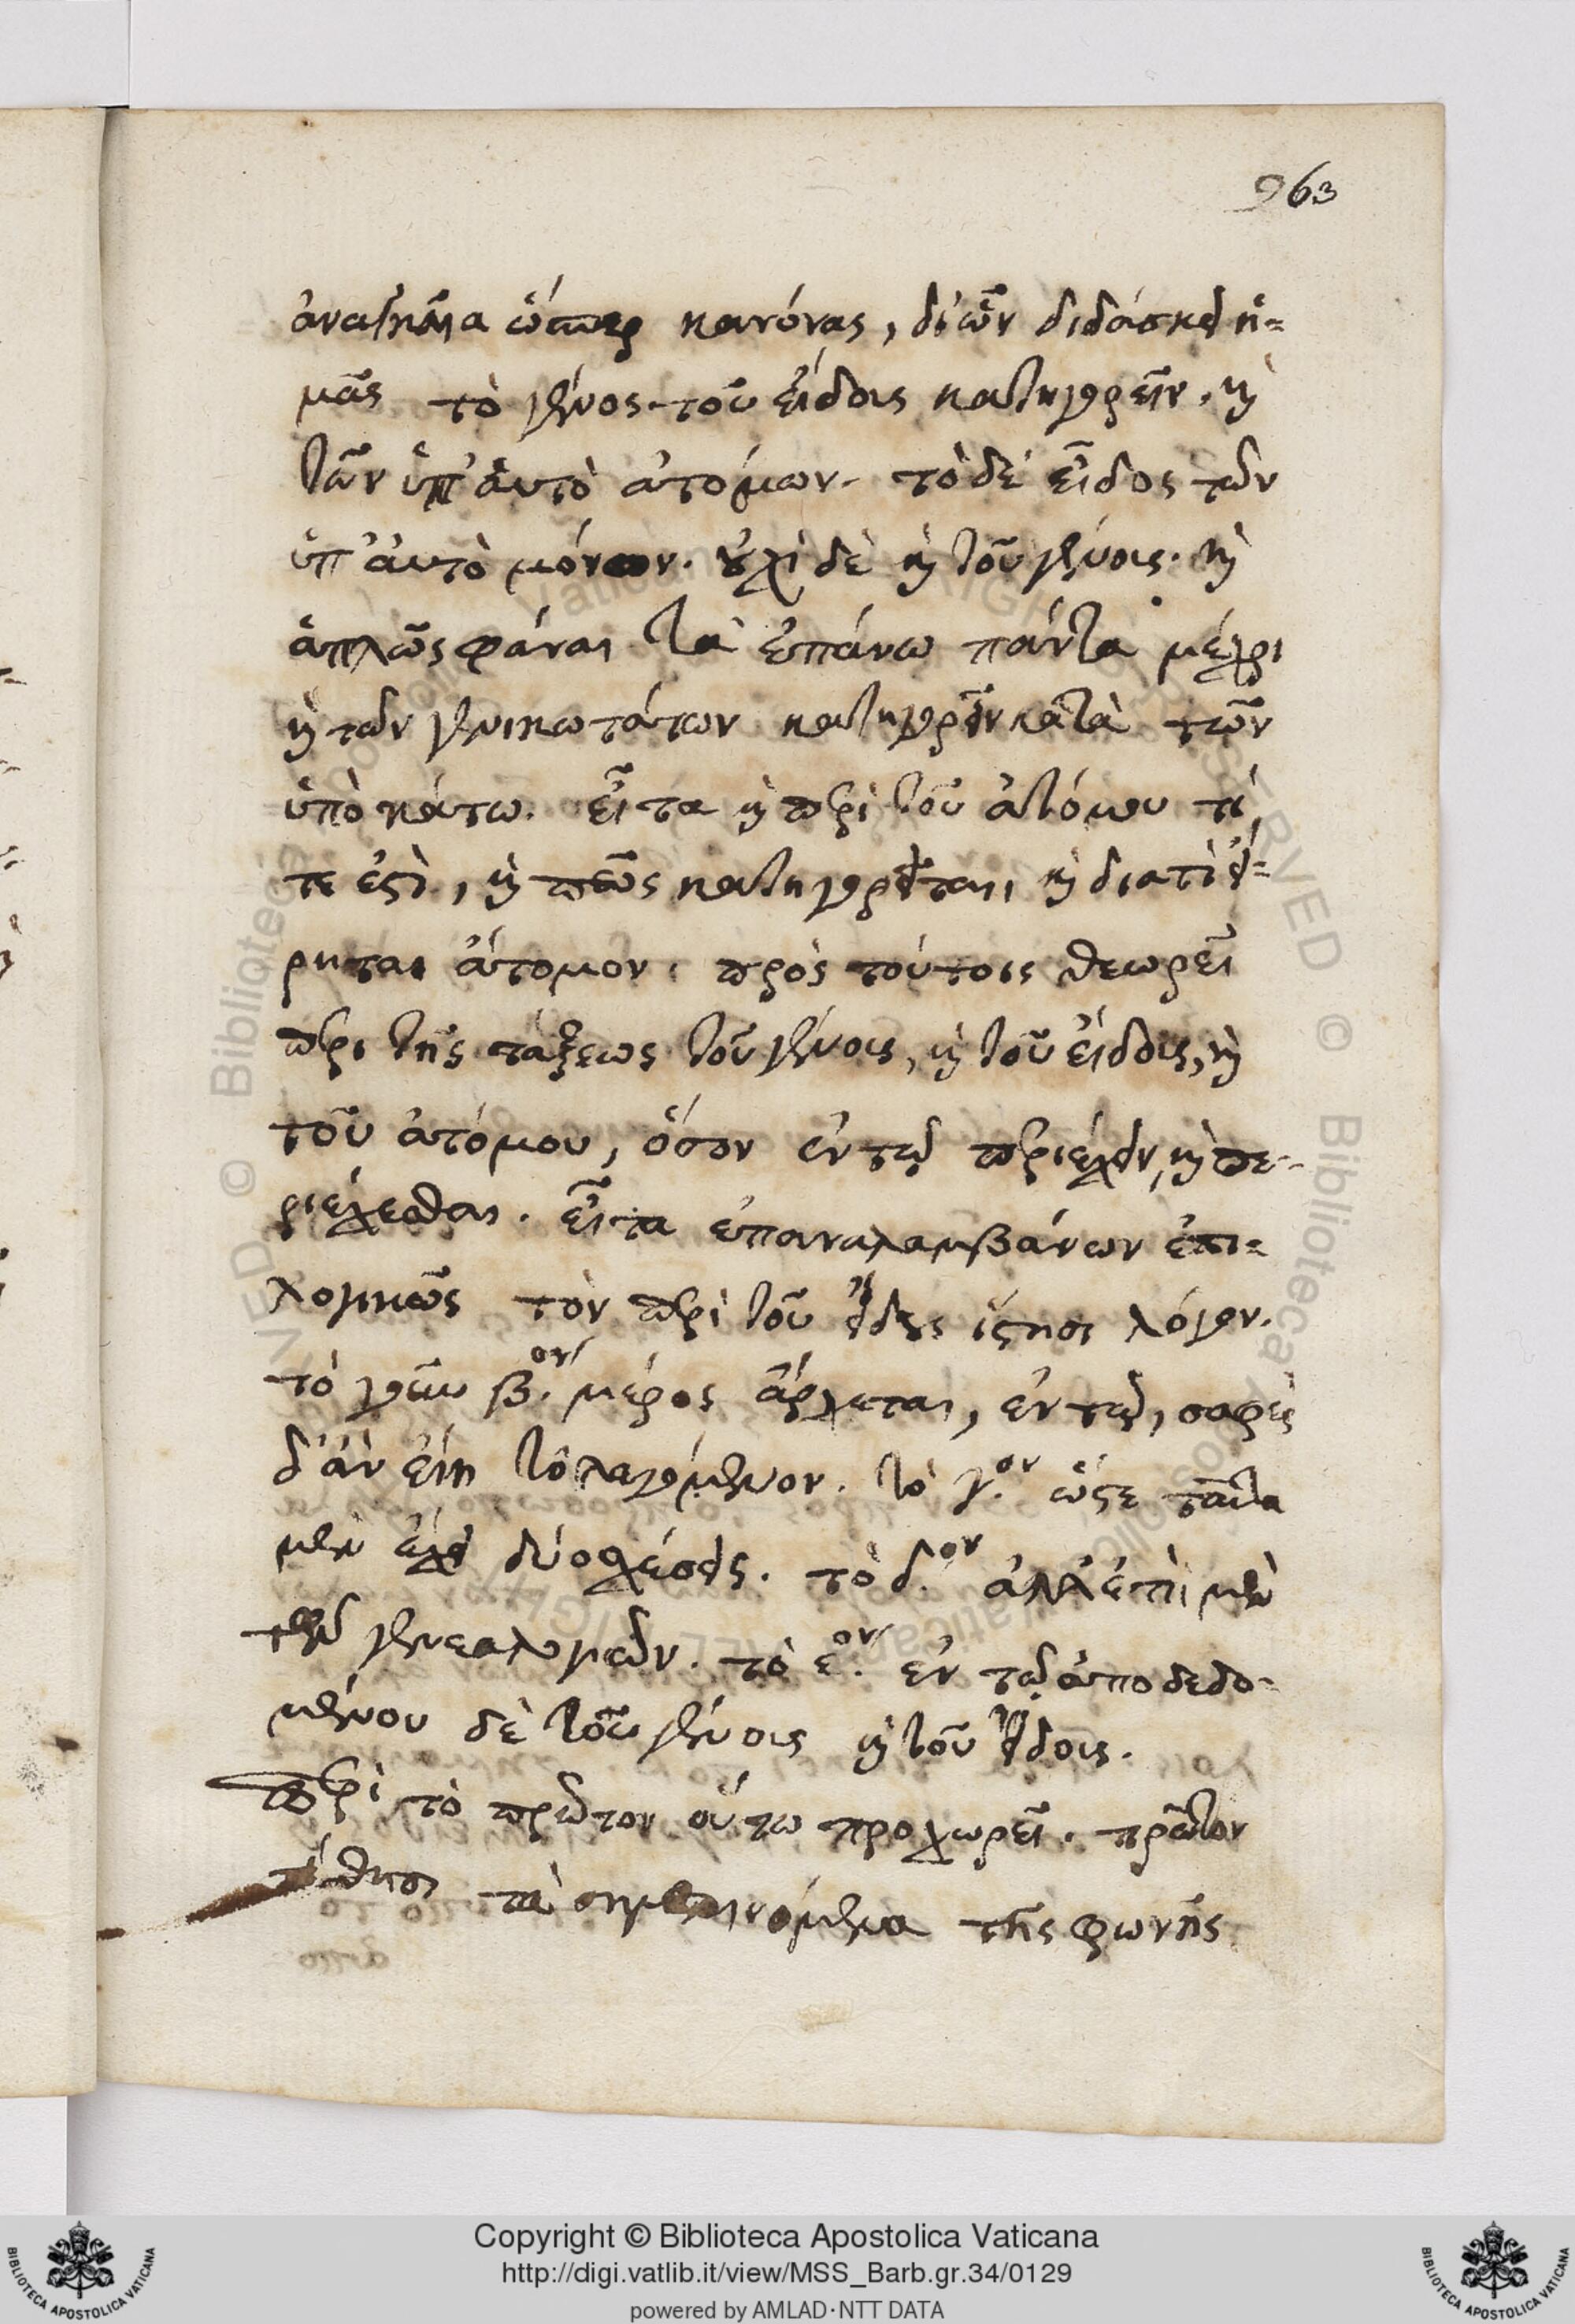 963
ἀναγκαῖα ὥσπερ κανόνας, δι' ὧν διδάσκει ἡ-
μᾶς τὸ γένος τοῦ εἴδους κατηγορεῖν. καὶ
τῶν ὑπ' αὐτὸ ἀτόμων. τὸ δὲ εἶδος τῶν
ὑπ' αὐτὸ μόνον. οὐχὶ δὲ καὶ τοῦ γένους. καὶ
ἁπλῶς φάναι τὰ ἐπάνω πάντα μέχρι
καὶ τῶν γενικωτάτων κατηγορεῖν κατὰ τῶν
ὑπὸ κάτω. εἶτα καὶ περὶ τοῦ ἀτόμου τί
τε ἐστὶ, καὶ πῶς κατηγορεῖται, καὶ διατὶ εἴ-
ρηται ἄτομον. πρὸς τούτοις θεωρεῖ
περὶ τῆς τάξεως τοῦ γένους, καὶ τοῦ εἴδους, καὶ
τοῦ ἀτόμου, ὅσον ἐν τῷ περιέχειν, καὶ πε-
ριέχεσθαι. εἶτα ἐπαναλαμβάνων ἐπι-
λογικῶς τὸν περὶ τοῦ εἴδους ἵστησι λόγον.
τὸ γοῦν β.ον μέρος ἄρχεται, ἐν τῷ, σαφὲς
δ' ἂν εἴη τὸ λεγόμενον. τὸ γ.ον ὥστε ταῦτα
μὲν ἔχει δύο σχέσεις. τὸ δ.ον ἀλλ' ἐπὶ μὲν
τῶν γενεαλογιῶν. τὸ ε.ον ἐν τῷ ἀποδεδο-
μένου δὲ τοῦ γένους καὶ τοῦ εἴδους.
περὶ τὸ πρῶτον οὕτω προχωρεῖ. πρῶτον
τίθησι τὰ σημαινόμενα τῆς φωνῆς
Copyright © Biblioteca Apostolica Vaticana
http://digi.vatlib.it/view/MSS_Barb.gr.34/0129
powered by AMLAD·NTT DATA